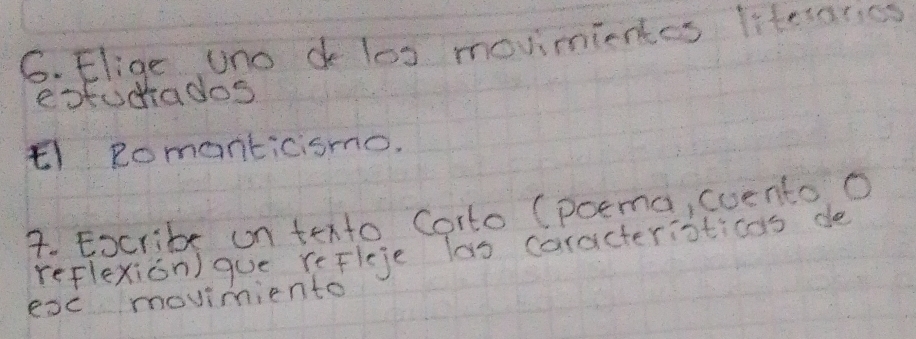 6. Elige uno de los movimientos literarios
estudiados
El Romanticismo.
7. Escribe un texto corto (poema, cuento o
reflexión) que refleje las características de
ese movimiento